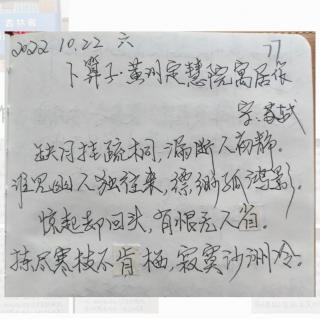 2022 10.22 六
77
卜算子·黄州定慧院寓居作
宋·苏轼
缺月挂疏桐，漏断人初静。
谁见幽人独往来，缥缈孤鸿影。
惊起却回头，有恨无人省。
拣尽寒枝不肯栖，寂寞沙洲冷。